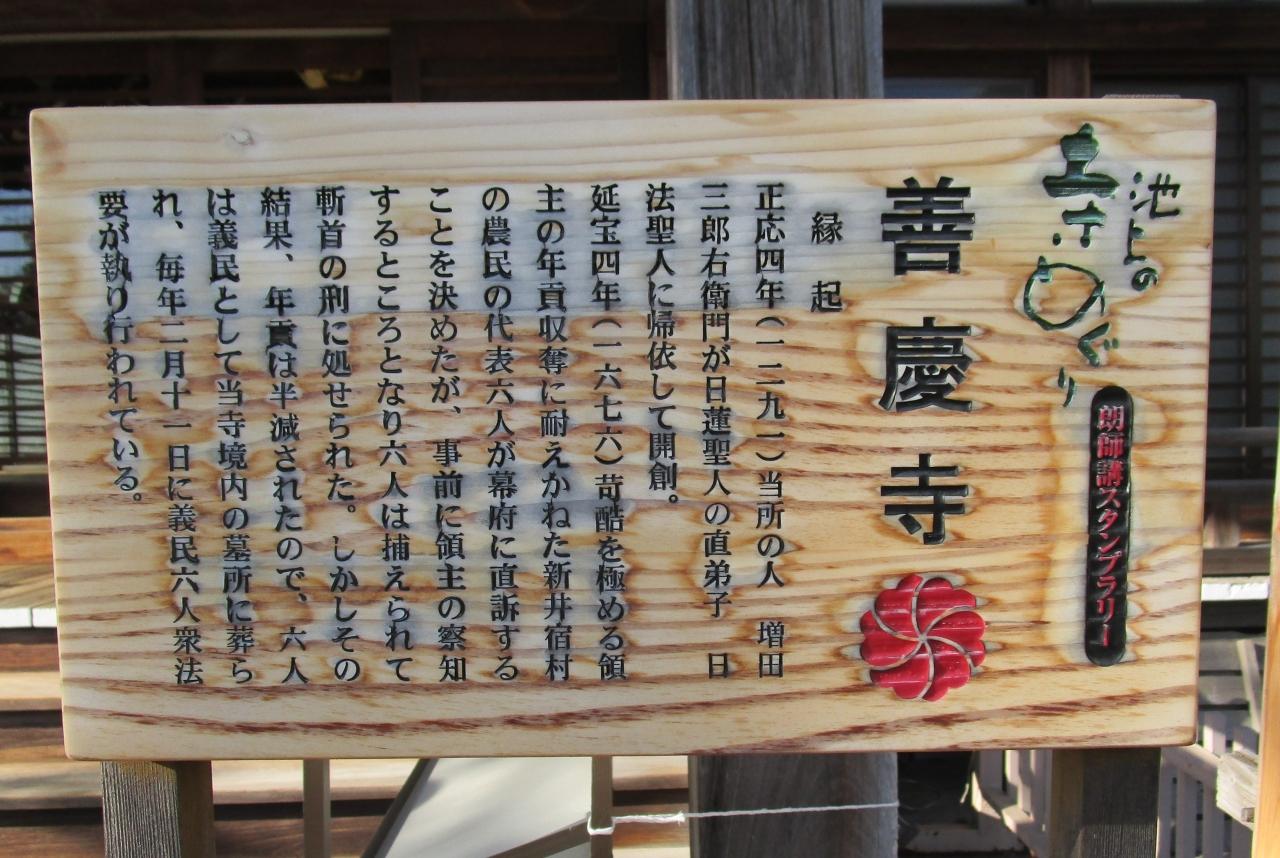 池上の
まちめぐり
朗師講スタンプラリー
善慶寺
縁起
正応四年（一二九一）当所の人　増田
三郎右衛門が日蓮聖人の直弟子　日
法聖人に帰依して開創。
延宝四年（一六七六）苛酷を極める領
主の年貢収奪に耐えかねた新井宿村
の農民の代表六人が幕府に直訴する
ことを決めたが、事前に領主の察知
するところとなり六人は捕えられて
斬首の刑に処せられた。しかしその
結果、年貢は半減されたので、六人
は義民として当寺境内の墓所に葬ら
れ、毎年二月十一日に義民六人衆法
要が執り行われている。